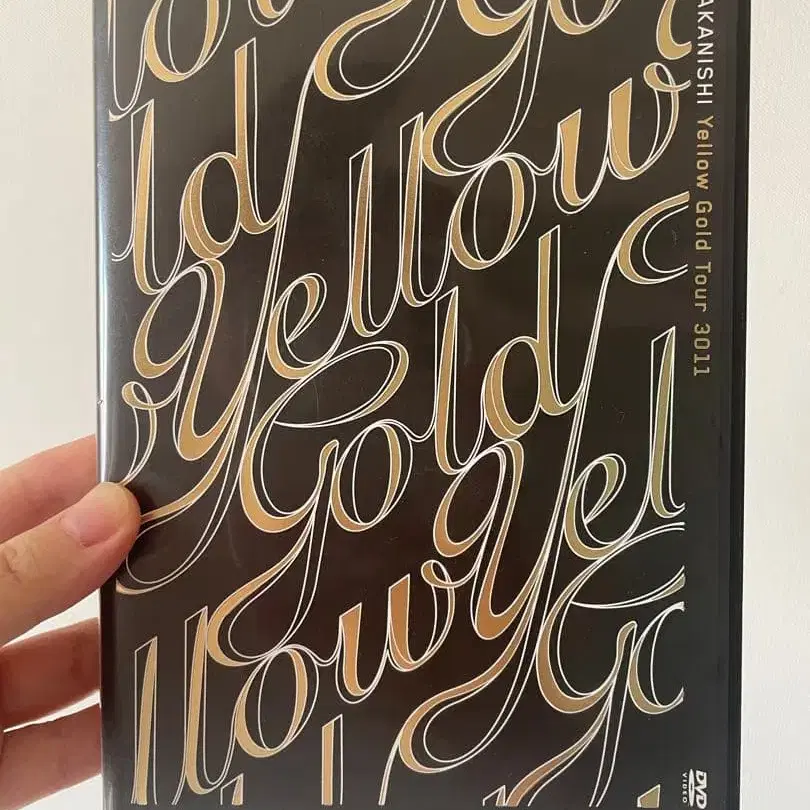 Go
ld Yellow
Yellow Gold
Gold Yel
llow Go
AKANISHI Yellow Gold Tour 3011
DVD
VIDEO